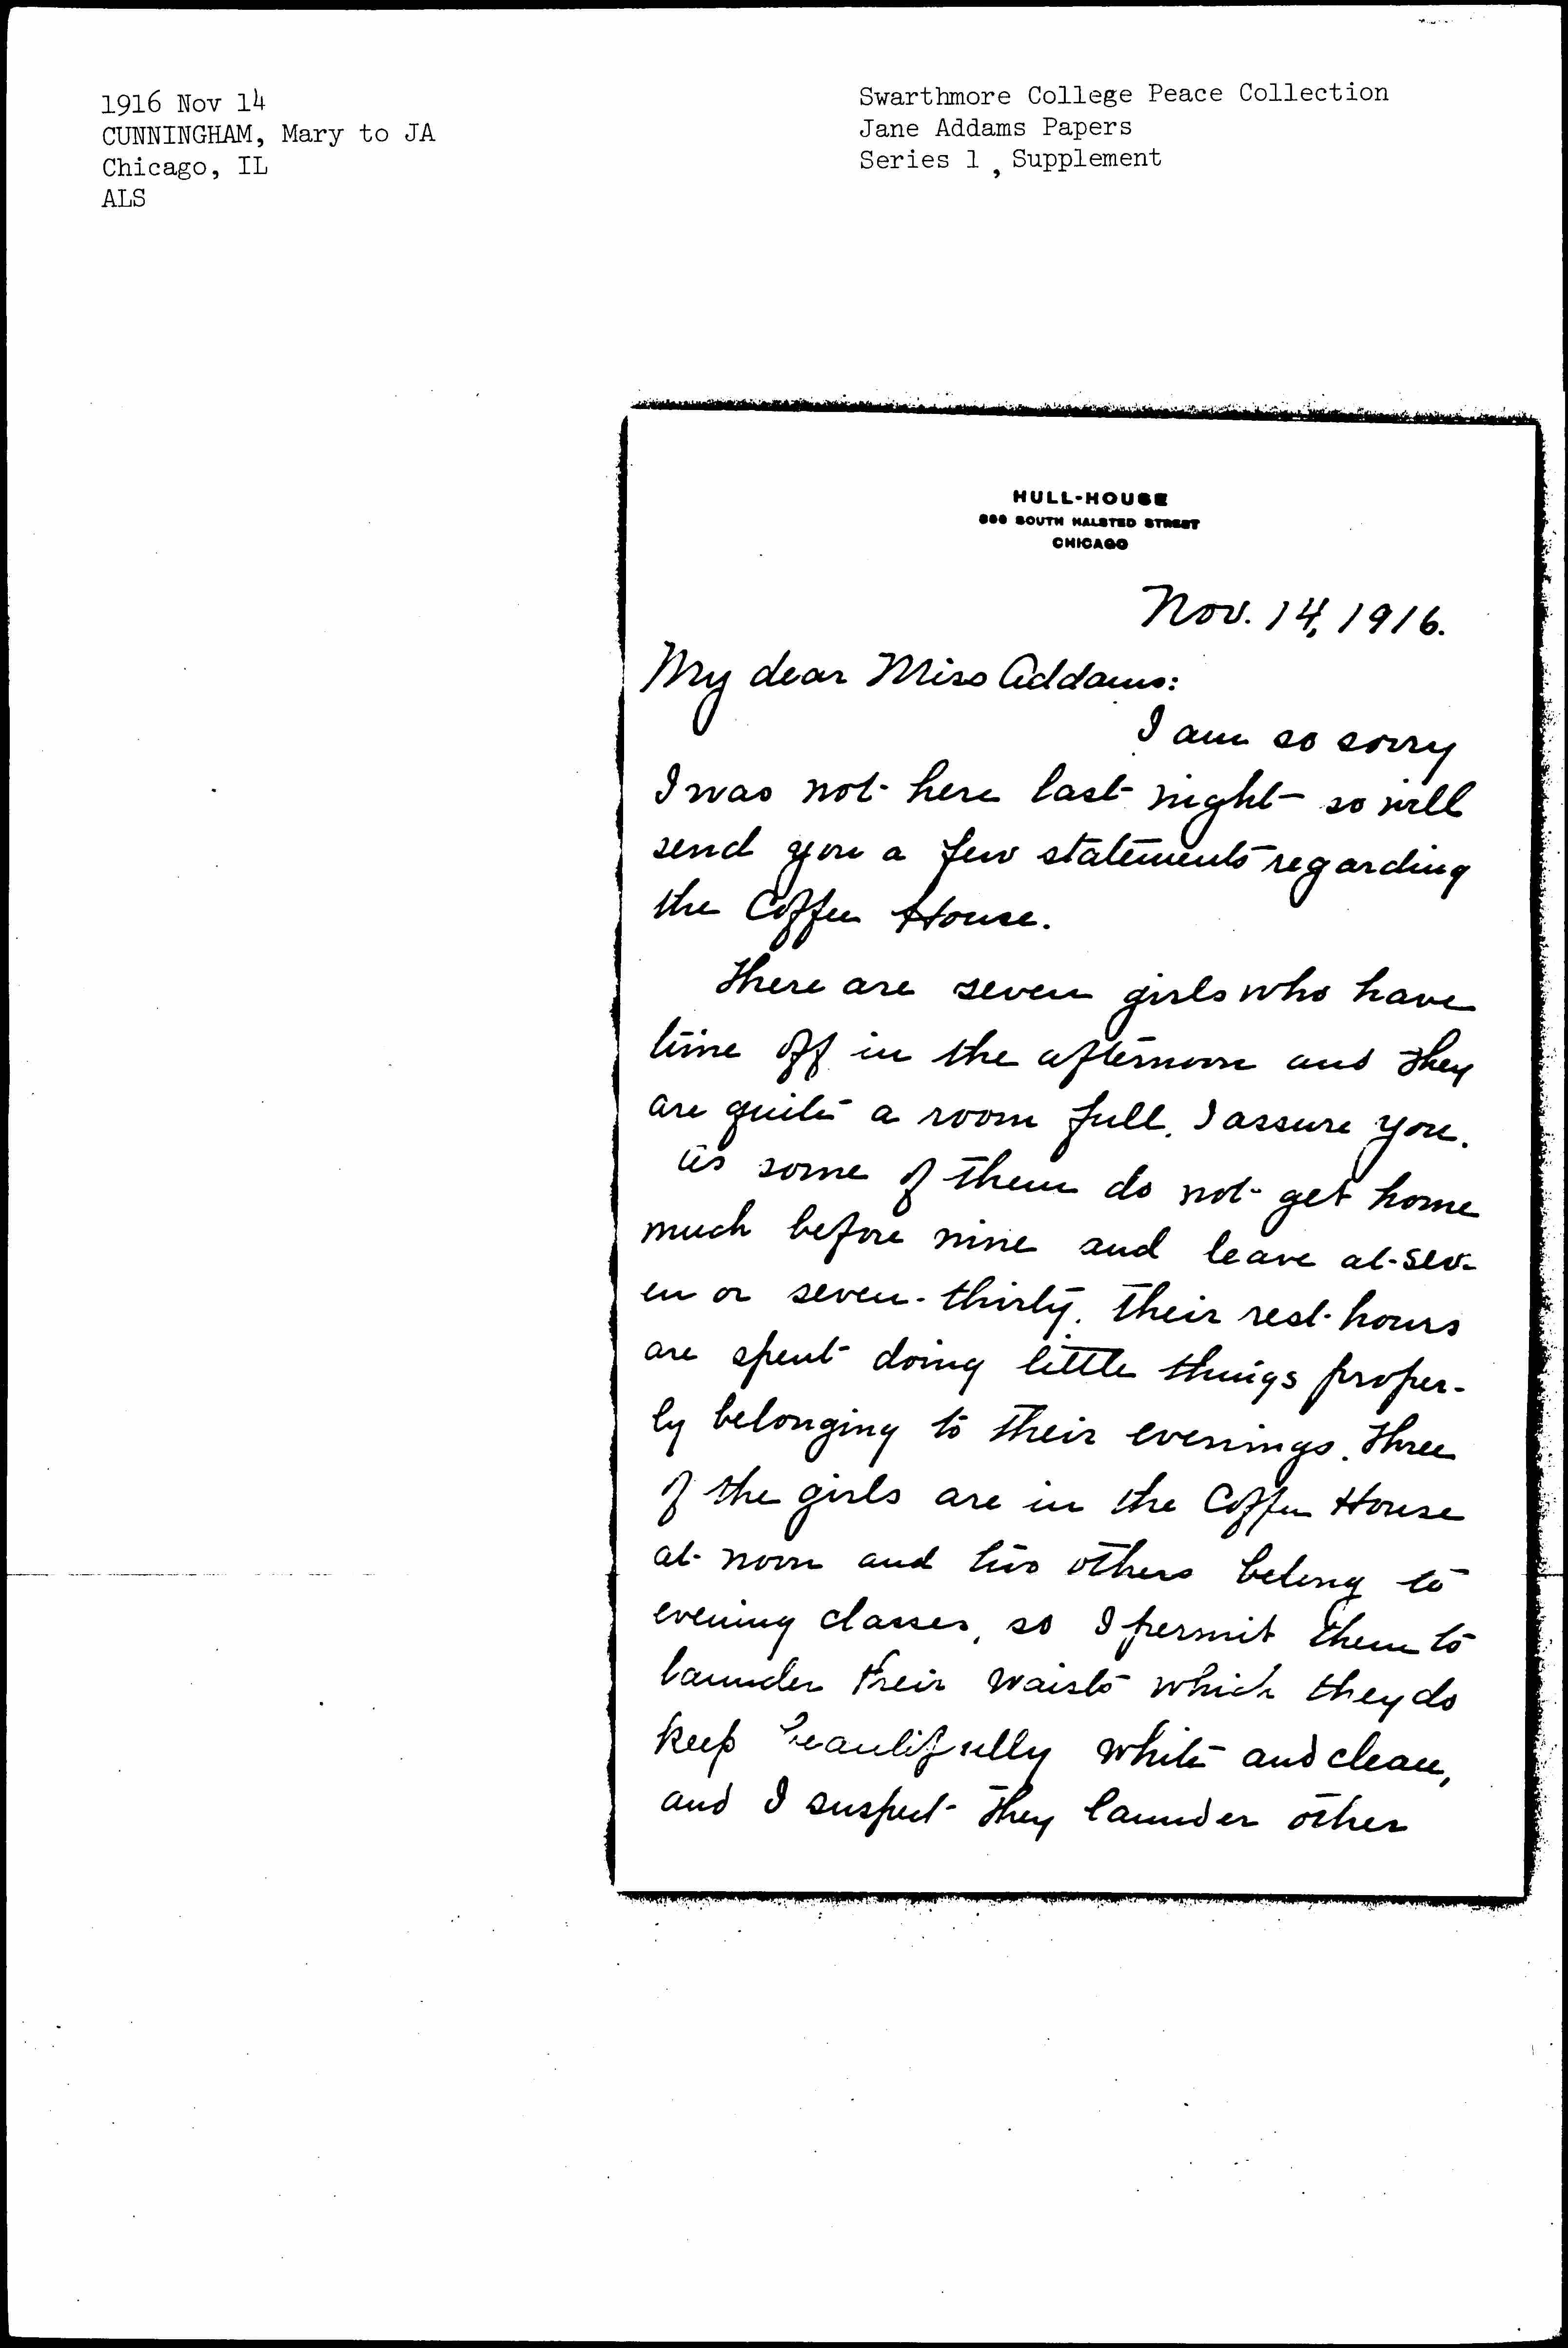 1916 Nov 14
CUNNINGHAM, Mary to JA
Chicago, IL
ALS
Swarthmore College Peace Collection
Jane Addams Papers
Series 1, Supplement
HULL-HOUSE
800 SOUTH HALSTED STREET
CHICAGO
Nov. 14, 1916.
My dear Miss Addams:
I am so sorry
I was not here last night so will
send you a few statements regarding
the Coffee House.
There are seven girls who have
time off in the afternoon and they
are quite a room full, I assure you.
As some of them do not get home
much before nine and leave at sev-
en or seven-thirty, their rest hours
are spent doing little things proper-
ly belonging to their evenings. Three
of the girls are in the Coffee House
at noon and two others belong to
evening classes, so I permit them to
launder their waists which they do
keep beautifully white and clean,
and I suspect they launder other